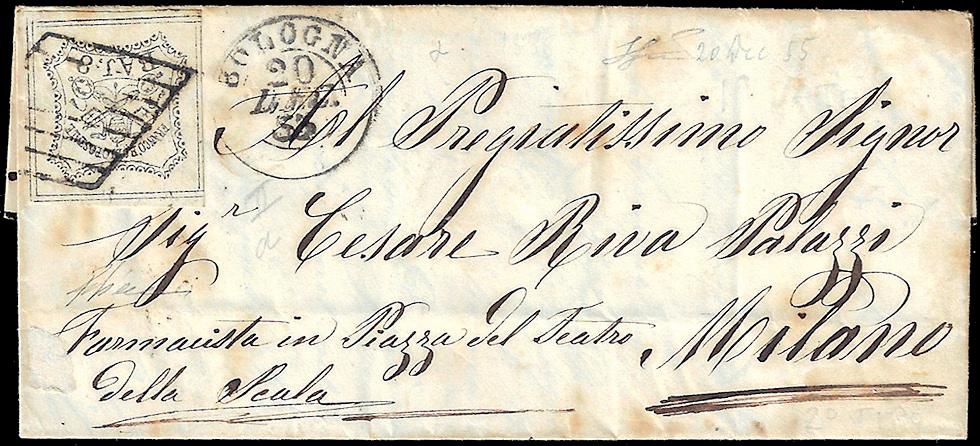 BAJ. 8
FRANCO BOLLO POSTALE
BOLOGNA
20
DIC.
55
20 Dic 55
Al Pregiatissimo Signor
Sigʳ Cesare Riva Palazzi
Farmacista in Piazza del Teatro Milano
della Scala